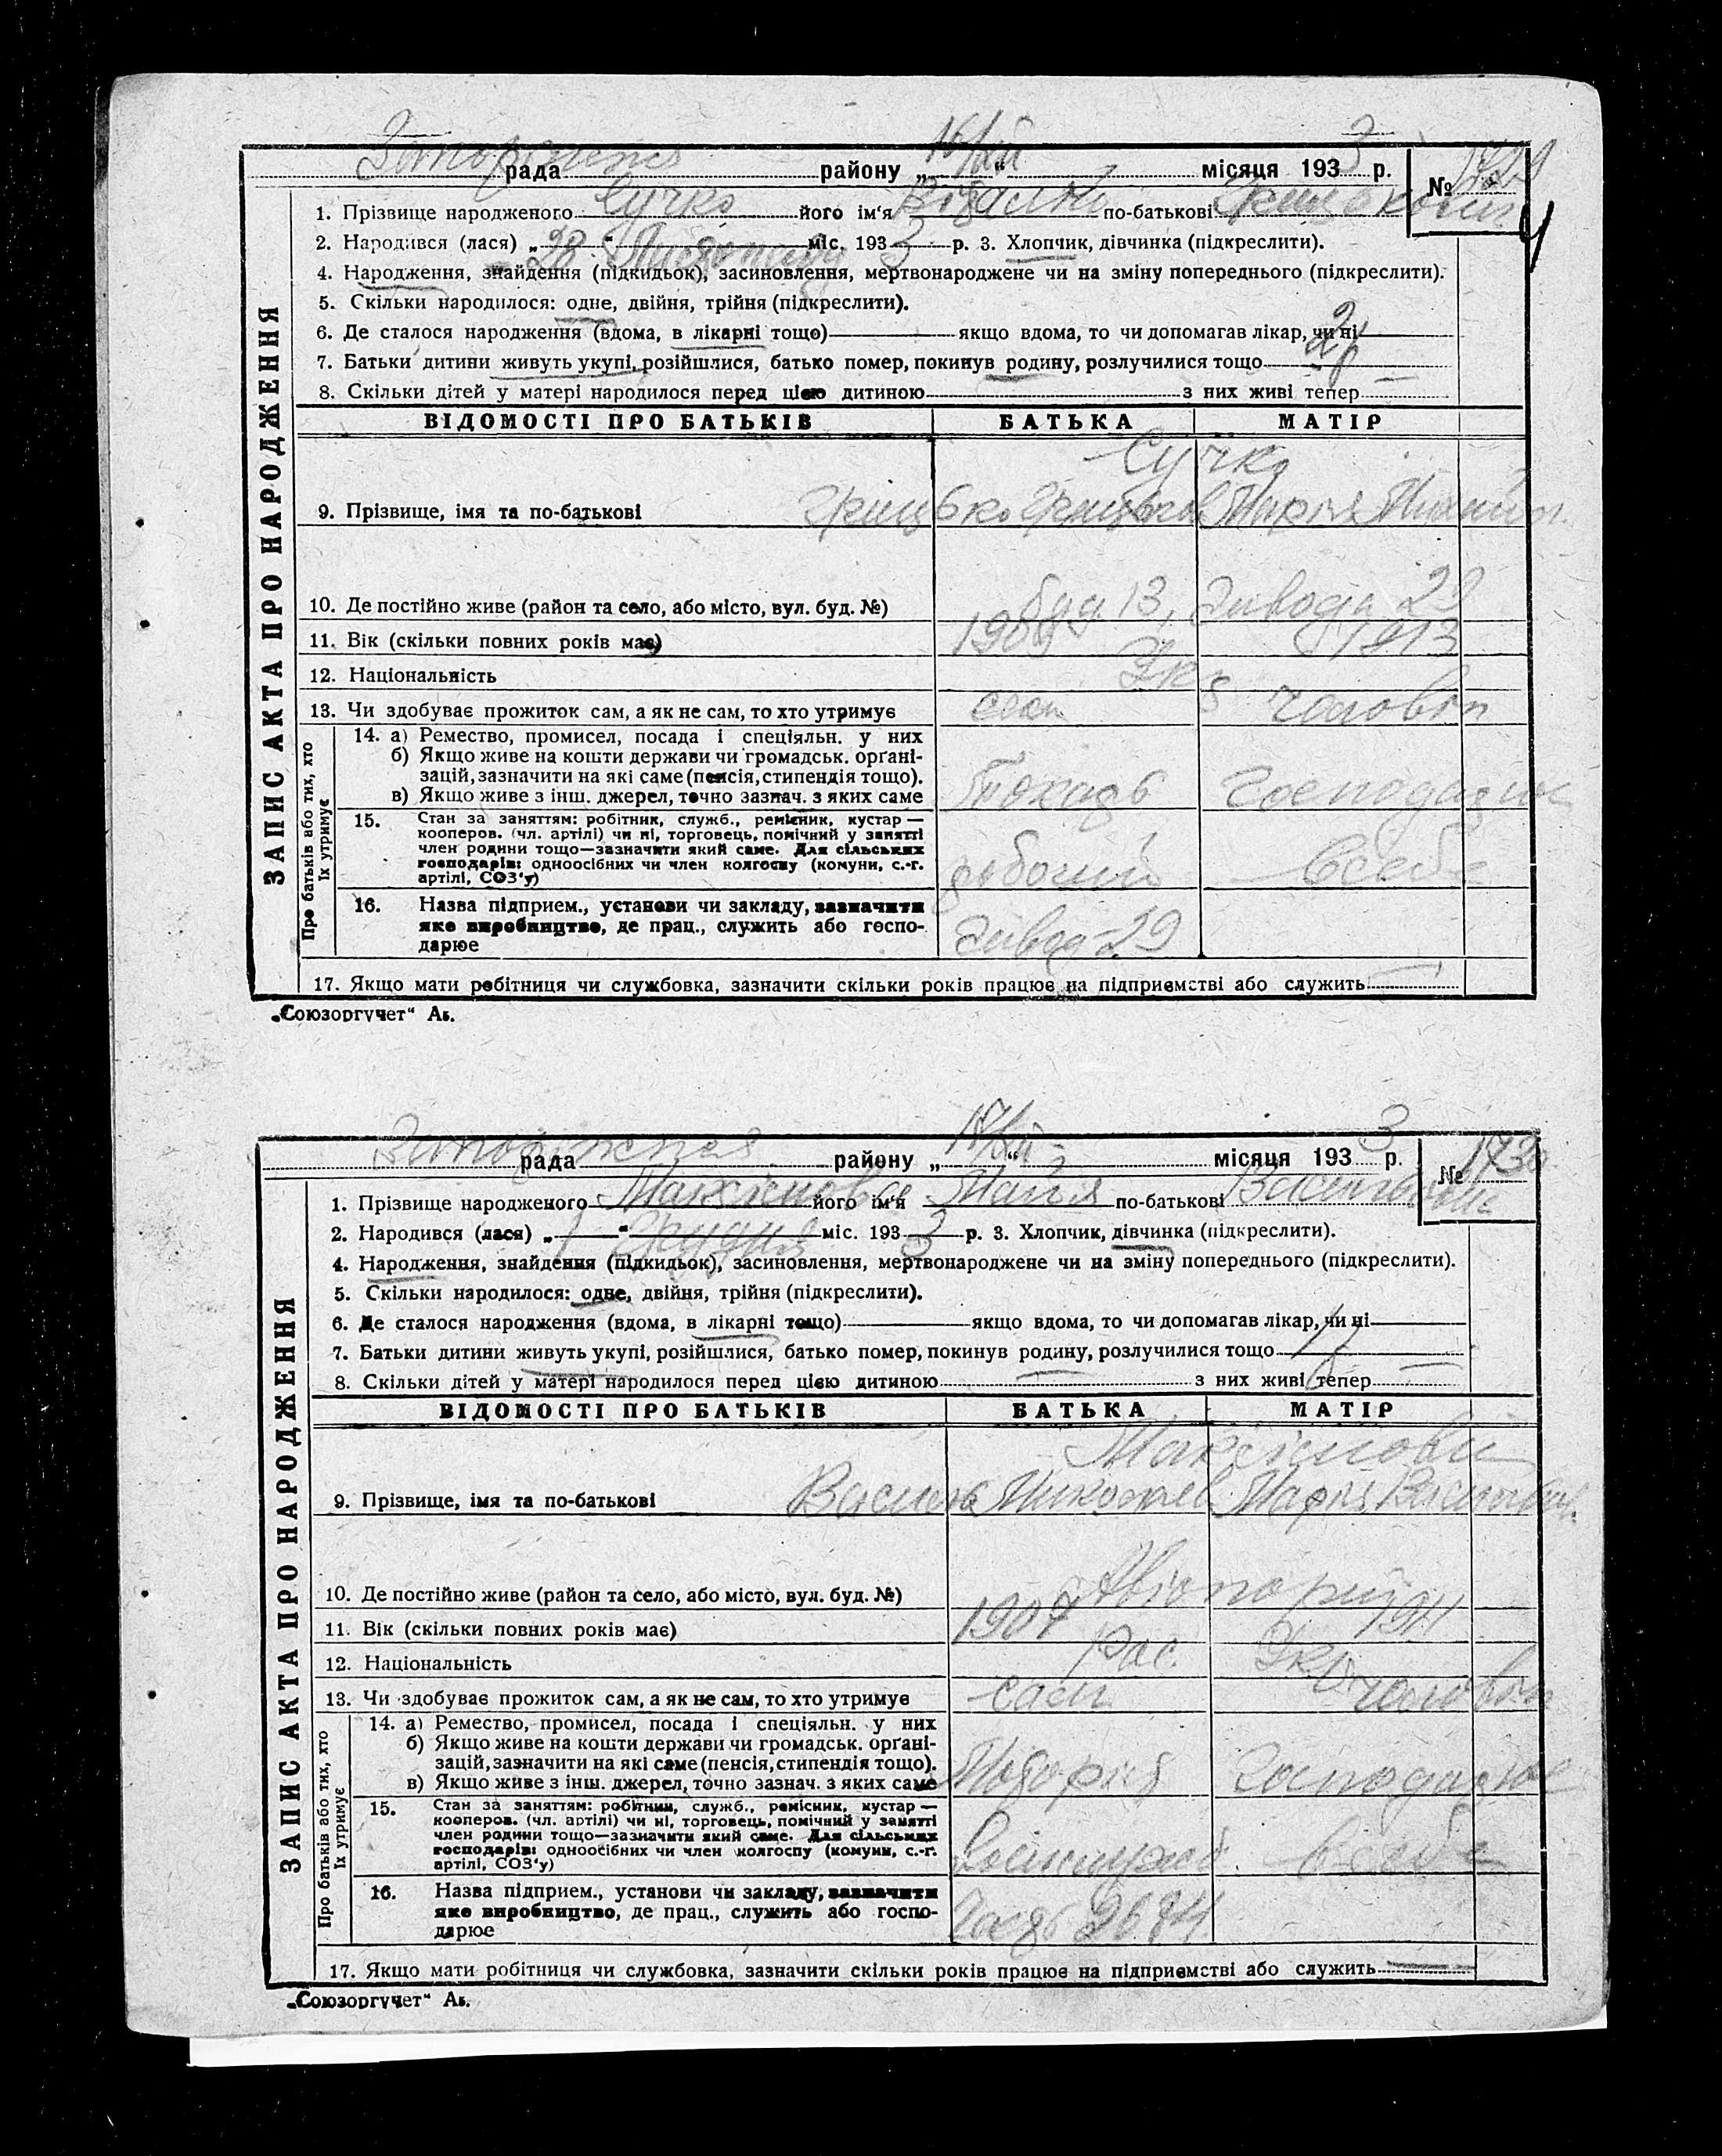 Запоріжжя рада району „16/XII“ місяця 1933 р. № 1729
1. Прізвище народженого Сучко його ім'я Віталій по-батькові Грицькович
2. Народився (лася) „28“ Листопаду міс. 1933 р. 3. Хлопчик, дівчинка (підкреслити).
4. Народження, знайдення (підкидьок), засиновлення, мертвонароджене чи на зміну попереднього (підкреслити).
5. Скільки народилося: одне, двійня, трійня (підкреслити).
6. Де сталося народження (вдома, в лікарні тощо) якщо вдома, то чи допомагав лікар, чи ні
7. Батьки дитини живуть укупі, розійшлися, батько помер, покинув родину, розлучилися тощо
8. Скільки дітей у матері народилося перед цією дитиною з них живі тепер
ЗАПИС АКТА ПРО НАРОДЖЕННЯ
ВІДОМОСТІ ПРО БАТЬКІВ БАТЬКА МАТІР
Сучко
9. Прізвище, імя та по-батькові Грицько Грицьков Марія Михайл.
10. Де постійно живе (район та село, або місто, вул. буд. №) буд. 13, Завода 29
11. Вік (скільки повних років має) 1909 1913
12. Національність Укр
13. Чи здобуває прожиток сам, а як не сам, то хто утримує сам чоловік
Про батьків або тих, хто їх утримує
14. а) Ремество, промисел, посада і спеціяльн. у них
б) Якщо живе на кошти держави чи громадськ. орґані-
зацій, зазначити на які саме (пенсія, стипендія тощо).
в) Якщо живе з інш. джерел, точно зазнач. з яких саме Токарь
15. Стан за заняттям: робітник, служб., ремісник, кустар —
кооперов. (чл. артілі) чи ні, торговець, помічний у занятті
член родини тощо—зазначити який саме. Для сільських
господарів: одноосібних чи член колгоспу (комуни, с.-г.
артілі, СОЗ'у) робочий в себе
16. Назва підприєм., установи чи закладу, зазначити
яке виробництво, де прац., служить або госпо-
дарює Завод 29
17. Якщо мати робітниця чи службовка, зазначити скільки років працює на підприємстві або служить
„Союзоргучет“ Аь.
Запоріжжя рада району „ “ місяця 1933 р. № 1730
1. Прізвище народженого Максімова його ім'я Майя по-батькові Васильевна
2. Народився (лася) „1“ Грудня міс. 1933 р. 3. Хлопчик, дівчинка (підкреслити).
4. Народження, знайдення (підкидьок), засиновлення, мертвонароджене чи на зміну попереднього (підкреслити).
5. Скільки народилося: одне, двійня, трійня (підкреслити).
6. Де сталося народження (вдома, в лікарні тощо) якщо вдома, то чи допомагав лікар, чи ні
7. Батьки дитини живуть укупі, розійшлися, батько помер, покинув родину, розлучилися тощо
8. Скільки дітей у матері народилося перед цією дитиною з них живі тепер
ЗАПИС АКТА ПРО НАРОДЖЕННЯ
ВІДОМОСТІ ПРО БАТЬКІВ БАТЬКА МАТІР
Максімови
9. Прізвище, імя та по-батькові Василь Николаев. Марія
10. Де постійно живе (район та село, або місто, вул. буд. №) Авіопарк
11. Вік (скільки повних років має) 1907 1911
12. Національність Рос. Укр
13. Чи здобуває прожиток сам, а як не сам, то хто утримує сам чоловік
Про батьків або тих, хто їх утримує
14. а) Ремество, промисел, посада і спеціяльн. у них
б) Якщо живе на кошти держави чи громадськ. орґані-
зацій, зазначити на які саме (пенсія, стипендія тощо).
в) Якщо живе з інш. джерел, точно зазнач. з яких саме
15. Стан за заняттям: робітник, служб., ремісник, кустар —
кооперов. (чл. артілі) чи ні, торговець, помічний у занятті
член родини тощо—зазначити який саме. Для сільських
господарів: одноосібних чи член колгоспу (комуни, с.-г.
артілі, СОЗ'у) в себе
16. Назва підприєм., установи чи закладу, зазначити
яке виробництво, де прац., служить або госпо-
дарює
17. Якщо мати робітниця чи службовка, зазначити скільки років працює на підприємстві або служить
„Союзоргучет“ Аь.